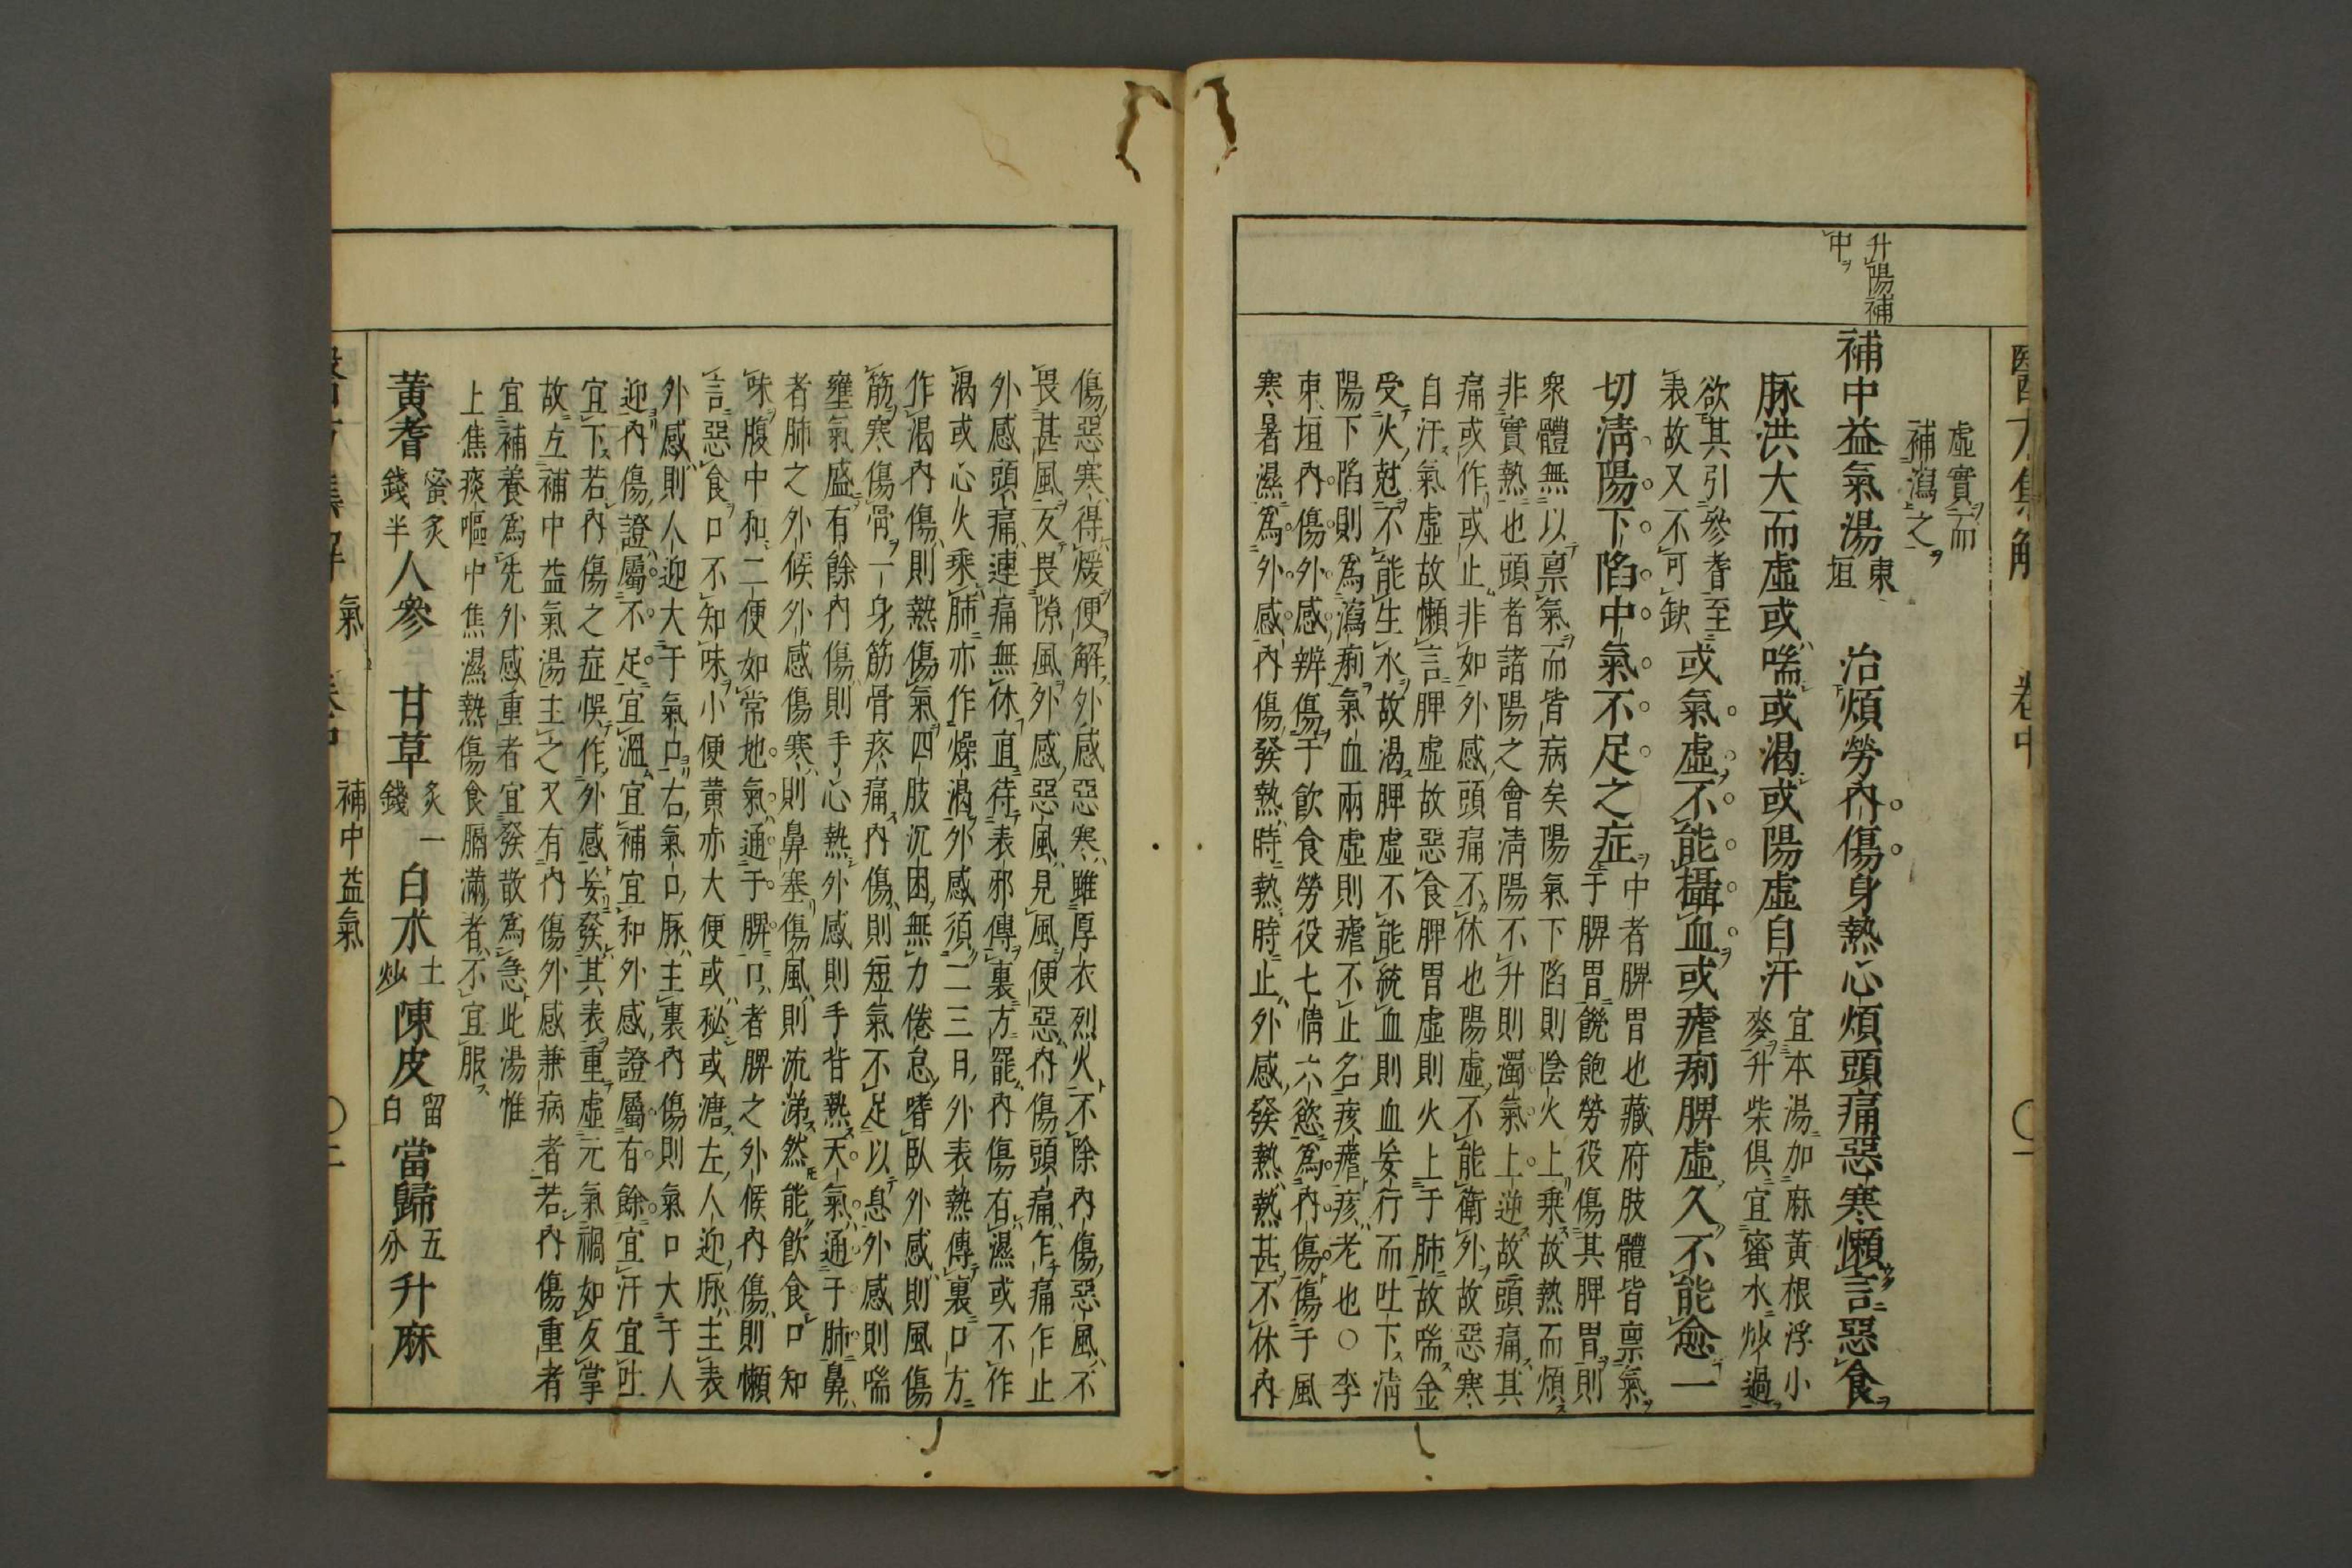 醫方集解 卷中 〇一
虛實而
補瀉之
升陽補
中
補中益氣湯東垣 治煩勞內傷身熱心煩頭痛惡寒懶言惡食
脉洪大而虛或喘或渴或陽虛自汗宜本湯加麻黃根浮小麥升柴俱宜蜜水炒過
欲其引參耆至表故又不可缺或氣虛不能攝血或瘧痢脾虛久不能愈一
切清陽下陷中氣不足之症中者脾胃也藏府肢體皆禀氣于脾胃饑飽勞役傷其脾胃則
衆體無以禀氣而皆病矣陽氣下陷則陰火上乘故熱而煩
非實熱也頭者諸陽之會清陽不升則濁氣上逆故頭痛其
痛或作或止非如外感頭痛不休也陽虛不能衛外故惡寒
自汗氣虛故懶言脾虛故惡食脾胃虛則火上于肺故喘金
受火尅不能生水故渴脾虛不能統血則血妄行而吐下清
陽下陷則為瀉痢氣血兩虛則瘧不止名痎瘧痎老也〇李
東垣內傷外感辨傷于飲食勞役七情六慾為內傷傷于風
寒暑濕為外感內傷發熱時熱時止外感發熱熱甚不休內
傷惡寒得煖便解外感惡寒雖厚衣烈火不除內傷惡風不
畏甚風反畏隙風外感惡風見風便惡內傷頭痛乍痛乍止
外感頭痛連痛無休直待表邪傳裏方罷內傷有濕或不作
渴或心火乘肺亦作燥渴外感須二三日外表熱傳裏口方
作渴內傷則熱傷氣四肢沉困無力倦怠嗜臥外感則風傷
筋寒傷骨一身筋骨疼痛內傷則短氣不足以息外感則喘
壅氣盛有餘內傷則手心熱外感則手背熱天氣通于肺鼻
者肺之外候外感傷寒則鼻塞傷風則流涕然能飲食口知
味腹中和二便如常地氣通于脾口者脾之外候內傷則懶
言惡食口不知味小便黃赤大便或秘或溏左人迎脉主表
外感則人迎大于氣口右氣口脉主裏內傷則氣口大于人
迎內傷證屬不足宜溫宜補宜和外感證屬有餘宜汗宜吐
宜下若內傷之症悞作外感妄發其表重虛元氣禍如反掌
故立補中益氣湯主之又有內傷外感兼病者若內傷重者
宜補養為先外感重者宜發散為急此湯惟
上焦痰嘔中焦濕熱傷食膈滿者不宜服
黃耆蜜炙錢半人參 甘草炙一錢白朮土炒陳皮留白當歸五分升麻
氣 補中益氣 〇二